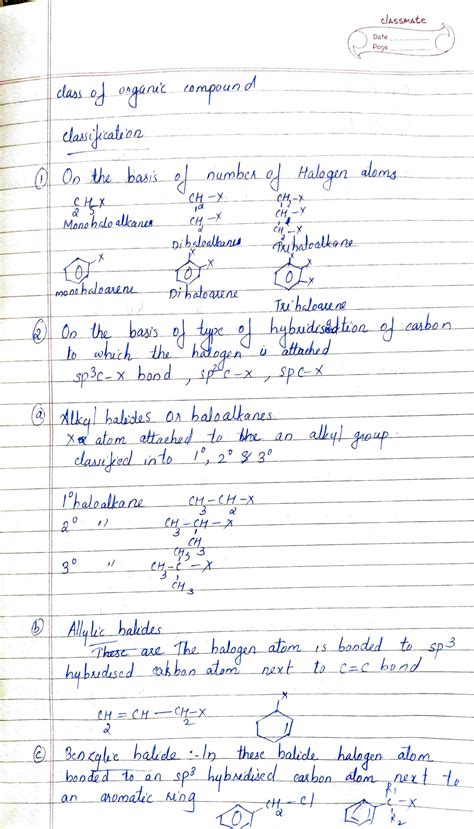 classmate
Date
Page
class of organic compound
classification
① On the basis of number of Halogen atoms
C₂H₅X CH₂-X CH₂-X
CH₂-X CH-X
CH₂-X
Monohaloalkanes Dihaloalkanes Trihaloalkane
X X X
X X
X
monohaloarene Dihaloarene Trihaloarene
② On the basis of type of hybridisation of carbon
to which the halogen is attached
sp³c-x bond, sp²c-x, spc-x
ⓐ Alkyl halides or haloalkanes
X atom attached to the an alkyl group
classified into 1°, 2° & 3°
1° haloalkane CH₃-CH₂-X
2° " CH₃-CH-X
CH₃
3° " CH₃
CH₃-C-X
CH₃
ⓑ Allylic halides
These are The halogen atom is bonded to sp³
hybridised carbon atom next to C=C bond
X
CH₂=CH-CH₂-X
ⓒ Benzylic halide :- In these halide halogen atom
bonded to an sp³ hybridised carbon atom next to
an aromatic ring
CH₂-Cl R₁
C-X
R₂